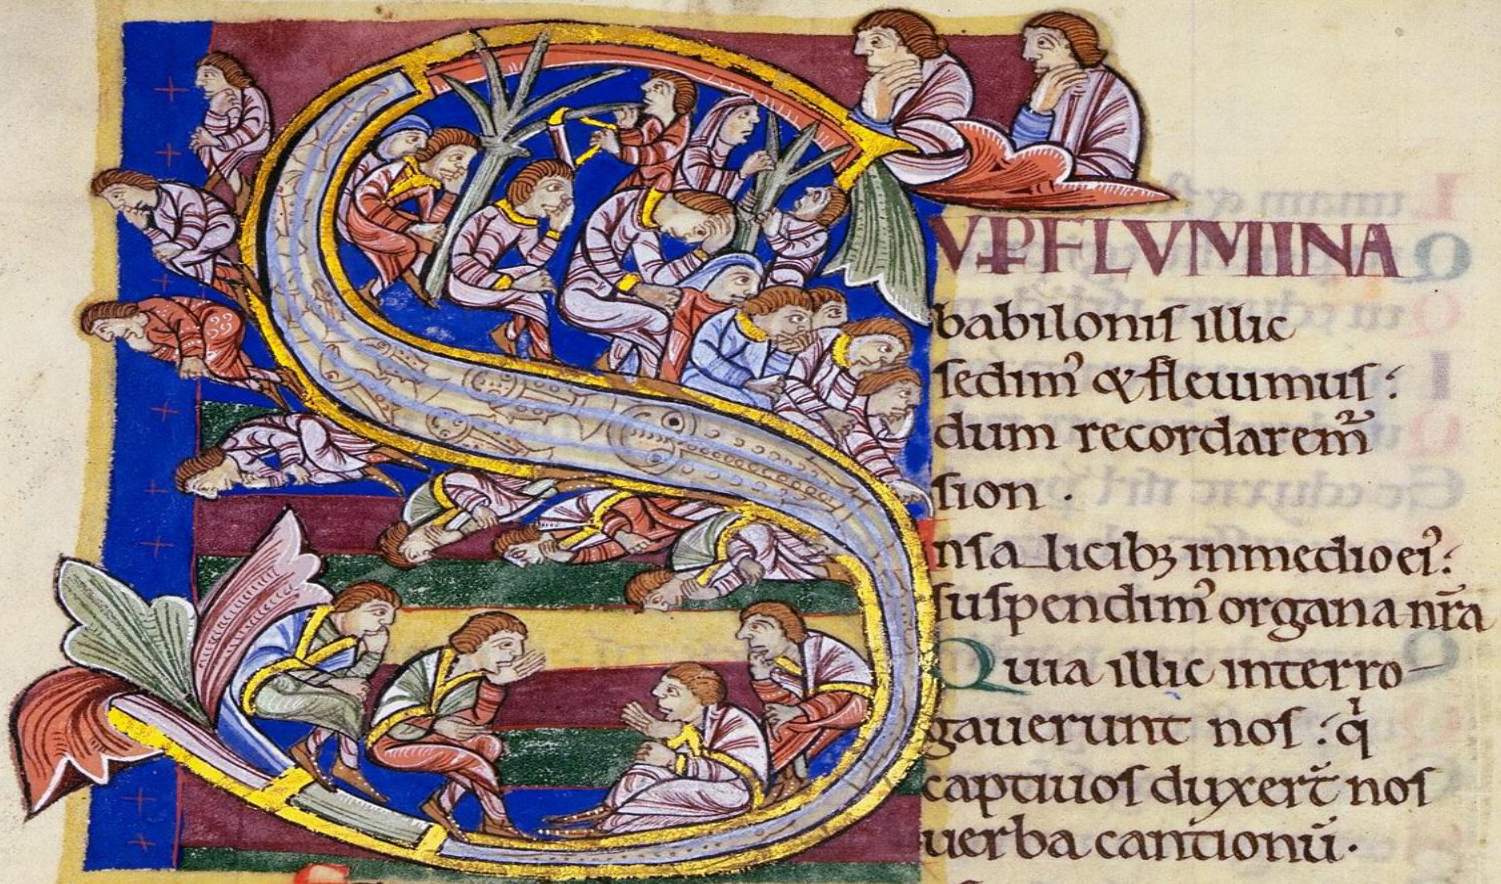 SUP FLUMINA
babilonis illic
sedim' & fleuimus:
dum recordarem̃
sion .
In salicib; in medio ei':
suspendim' organa nr̃a
Quia illic interro-
gauerunt nos: qi
captiuos duxert̃ nos
uerba cantionũ.